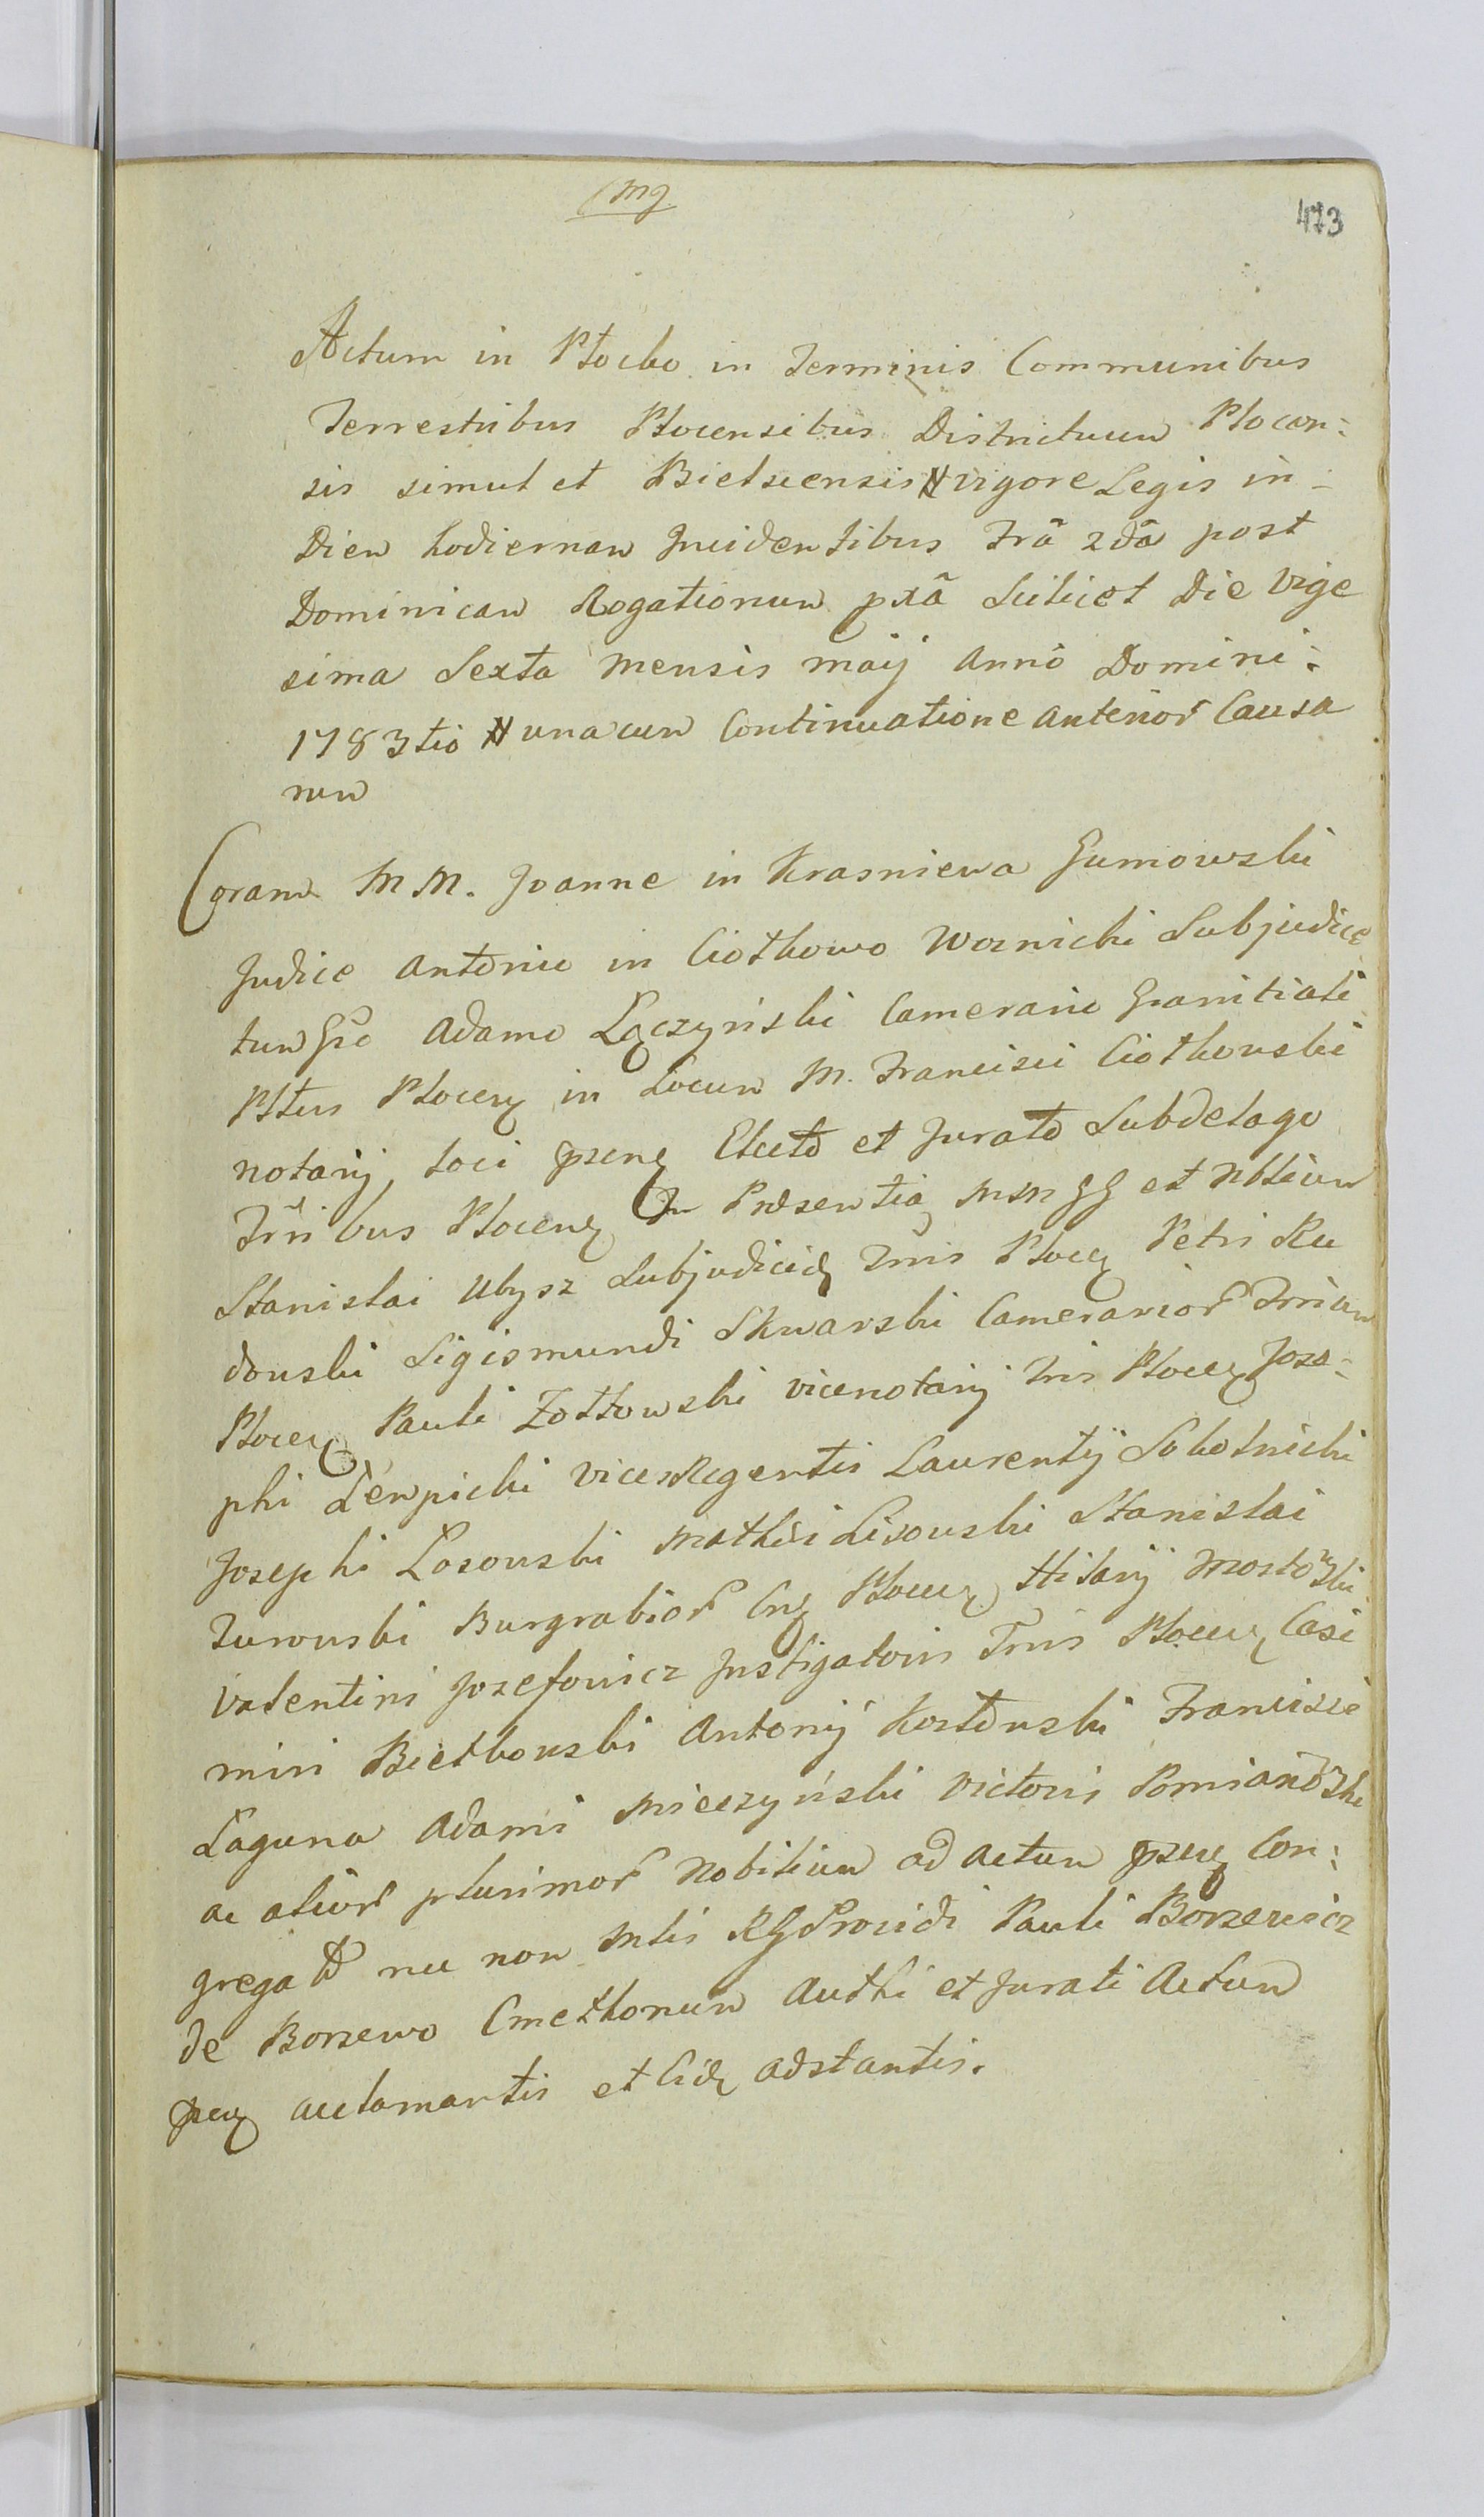 Mg
473
Actum in Płocko in Terminis Communibus
Terrestribus Plocensibus Districtuum Plocen:
sis simul et Bielscensis vigore Legis in
Diem hodiernam Incidentibus Frã 2dã post
Dominicam Rogationum pxã Scilicet Die Vige
sima Sexta Mensis Maij Anno Domini:
1783tio una cum Continuatione Anterior Causa
rum
Coram M M. Joanne in Krasniewa Gumowski
Judice Antonio in Ciołkowo Woznicki Subjudice
tum Gso Adamo Łączyński Camerario Granitiali
Plocen in Locum M. Francisci Ciołkowski
Notarij loci Electo et Jurato Subdelago
Trribus Plocen In Præsentia MM GG et Nblium
Stanislai Ubysz Subjudicis Trris Plocen Petri Ru
dowski Sigismundi Skwarski Camerarior Trrium
Plocen Pauli Żółtowski Vicenotarij Trris Plocen Jose:
phi Lempicki Vices Regentis Laurentij Sobotnicki
Josephi Łosowski Mathei Lisowski Stanislai
Turowski Burgrabior Plocen Hilarij
Valentini Jozefowicz Instigatoris Trris Plocen Casi
miri Bielkowski Antonij Francisci
Laguna Adami Mieczyński Victoris
ac alior plurimor Nobilium ad Actum Con:
gregat nec non Mlis RG Providi Pauli Borzewicz
de Borzewo Cmethonum Authi et Jurati Actum
acclamantis et adstantis.